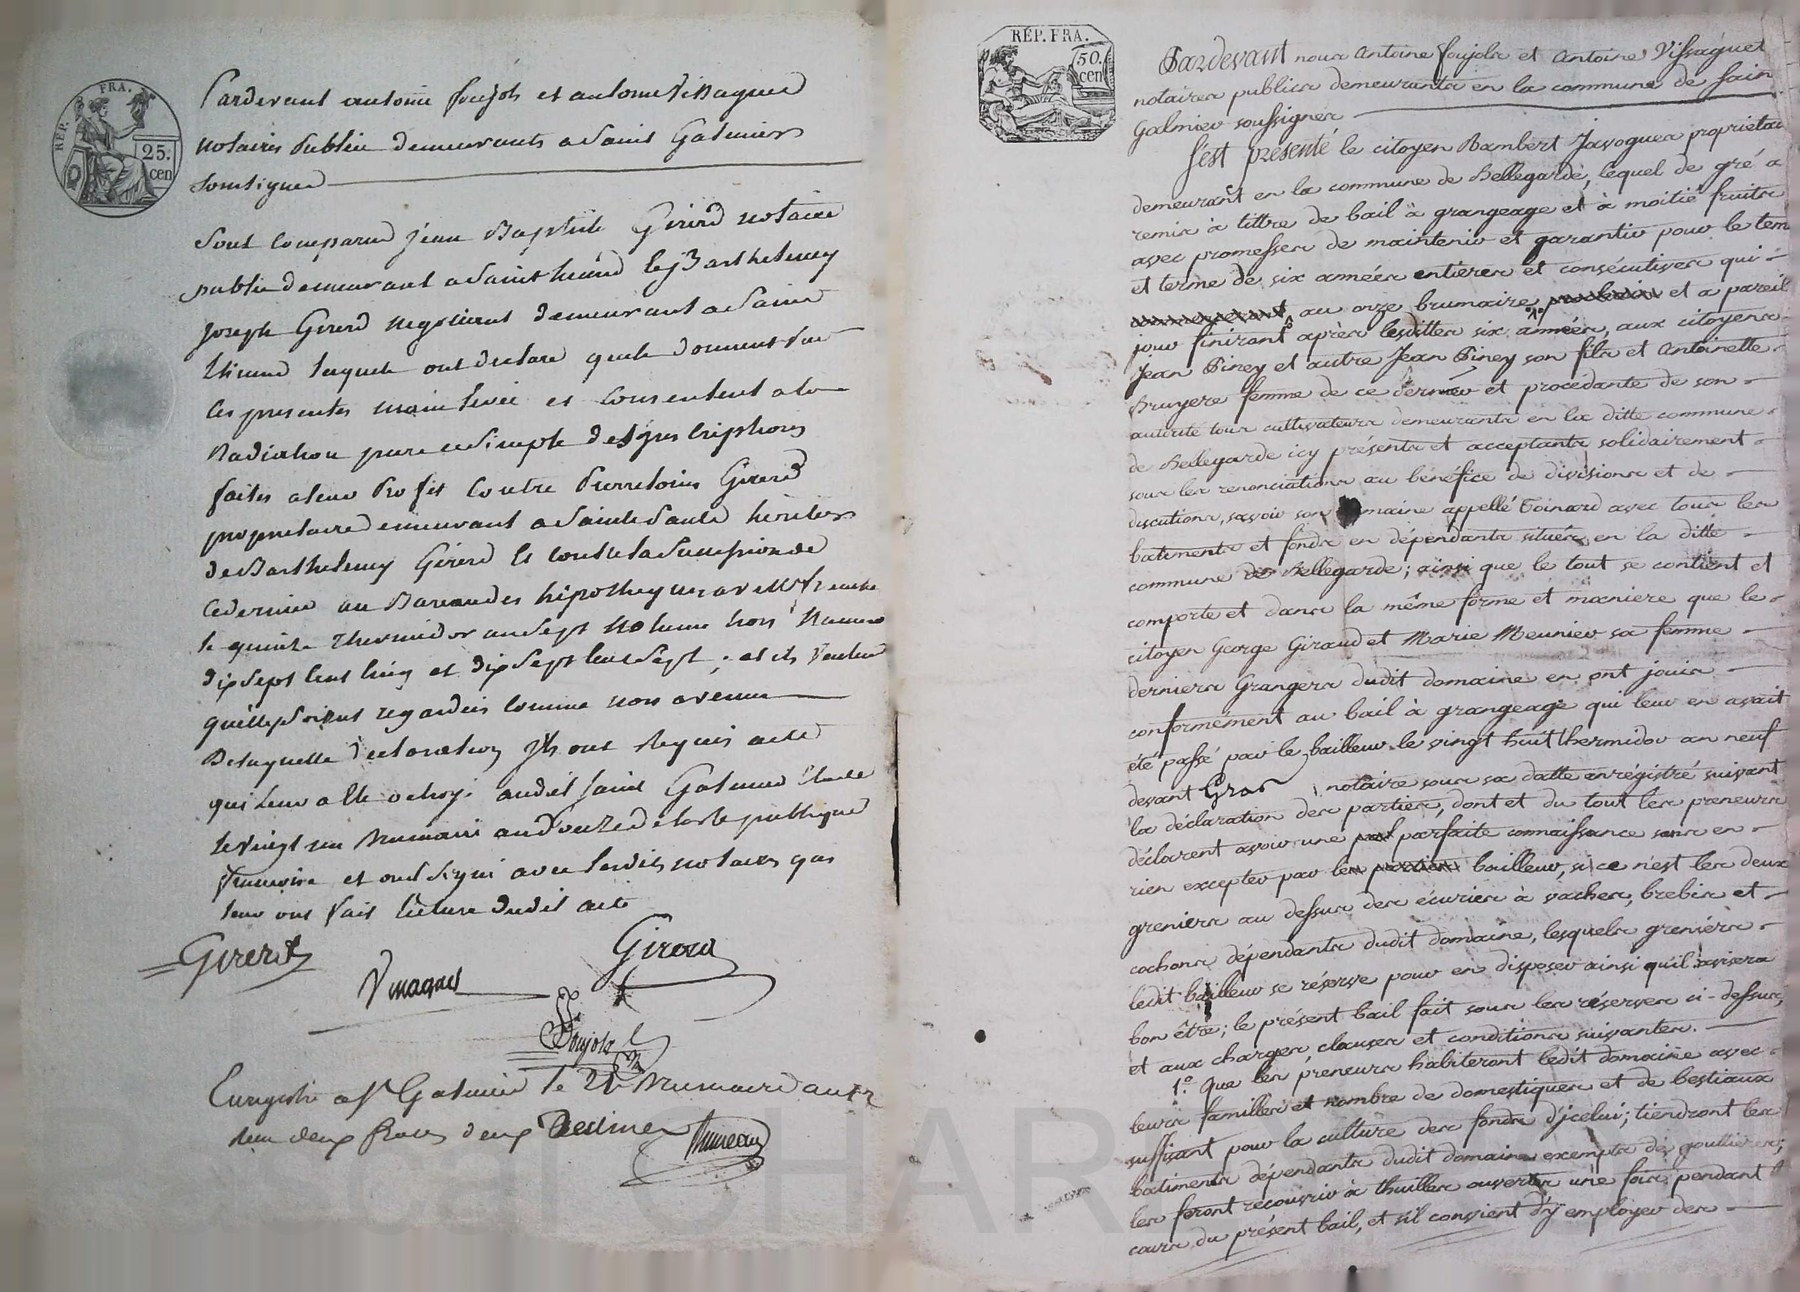 RÉP. FRA.
25.
cen
Pardevant antoine foujols et antoine Vissaguet
notaires Publics demeurants a Saint Galmier
Soussignes
Sont Comparus jean Baptiste Girerd notaire
public demeurant a Saint heand & Barthelemy
Joseph Girerd negotiant demeurant a Saint
Etienne lesquels ont declaré quils donnent Par
Ces presentes main levée et Consentent a la
Radiation pure et Simple des jnscriptions
faites a leur Profit Contre Pierre louis Girerd
propriétaire demeurant a Sainte Paule heritier
de Barthelemy Girerd et contre la Succession de
Ce dernier au Bureau des hipotheques
le quinze thermidor an Sept Volume trois Numero
dix Sept Cent Cinq et dix Sept Cent Sept ; et ils veulent
qu'elles Soient regardées Comme non avenues
De laquelle declaration jls ont Requis acte
qui Leur a été octroyé audit Saint Galmier
le vingt un Brumaire an Douze de la republique
francaise et ont Signé avec lesdits notaires qui
leur ont fait lecture dudit acte
Girerd
Girerd
Vissaguet
Foujols
Enregistré a St Galmier le 21 Brumaire an 12
Reçu deux francs deux Decimes
Bruneau
RÉP. FRA.
50.
cen
Pardevant nous Antoine foujols et Antoine Vissaguet
notaires publics demeurants en la commune de Sain
Galmier soussignes
S'est présenté le citoyen Rambert Javogues proprietai
demeurant en la commune de Bellegarde, lequel de gré a
remis à tittre de bail à grangeage et à moitié fruits
avec promesses de maintenir et garantir pour le tem
et terme de six années entières et consécutives qui
au onze brumaire et a pareil
jour finiront après lesdittes six années, aux citoyens
Jean Piney et autre Jean Piney son fils et Antoinette
Bruyere femme de ce dernier et procédante de son
autorité tous cultivateurs demeurants en la ditte commune
de Bellegarde icy présents et acceptants solidairement
sous les renonciations au bénéfice de divisions et de
discutions, savoir son domaine appellé Poinard avec tous les
batiments et fonds en dépendants situés en la ditte
commune de Bellegarde ; ainsi que le tout se contient et
comporte et dans la même forme et maniere que le
citoyen George Giraud et Marie Meunier sa femme
derniers Grangers dudit domaine en ont jouis
conformement au bail à grangeage qui leur en avait
été passé par le bailleur le vingt huit thermidor an neuf
devant Gras notaire sous sa datte enrégistré suivant
la déclaration des parties, dont et du tout les preneurs
déclarent avoir une parfaite connaissance sans en
rien excepter par le bailleur, si ce n'est les deux
greniers au dessus des écuries à vaches, brebis et
cochons dépendants dudit domaine, lesquels greniérs
ledit bailleur se réserve pour en disposer ainsi qu'il avisera
bon être ; le présent bail fait sous les réserves ci-dessus,
et aux charges, clauses et conditions suivantes.
1.° Que les preneurs habiteront ledit domaine avec
leurs familles et nombre de domestiques et de bestiaux
suffisant pour la culture des fonds d'jcelui ; tiendront les
batiments dépendants dudit domaine exempts de gouttieres ;
les feront recouvrir à thuilles ouvertes une fois pendant l
cours du présent bail, et s'il convient d'y employer des